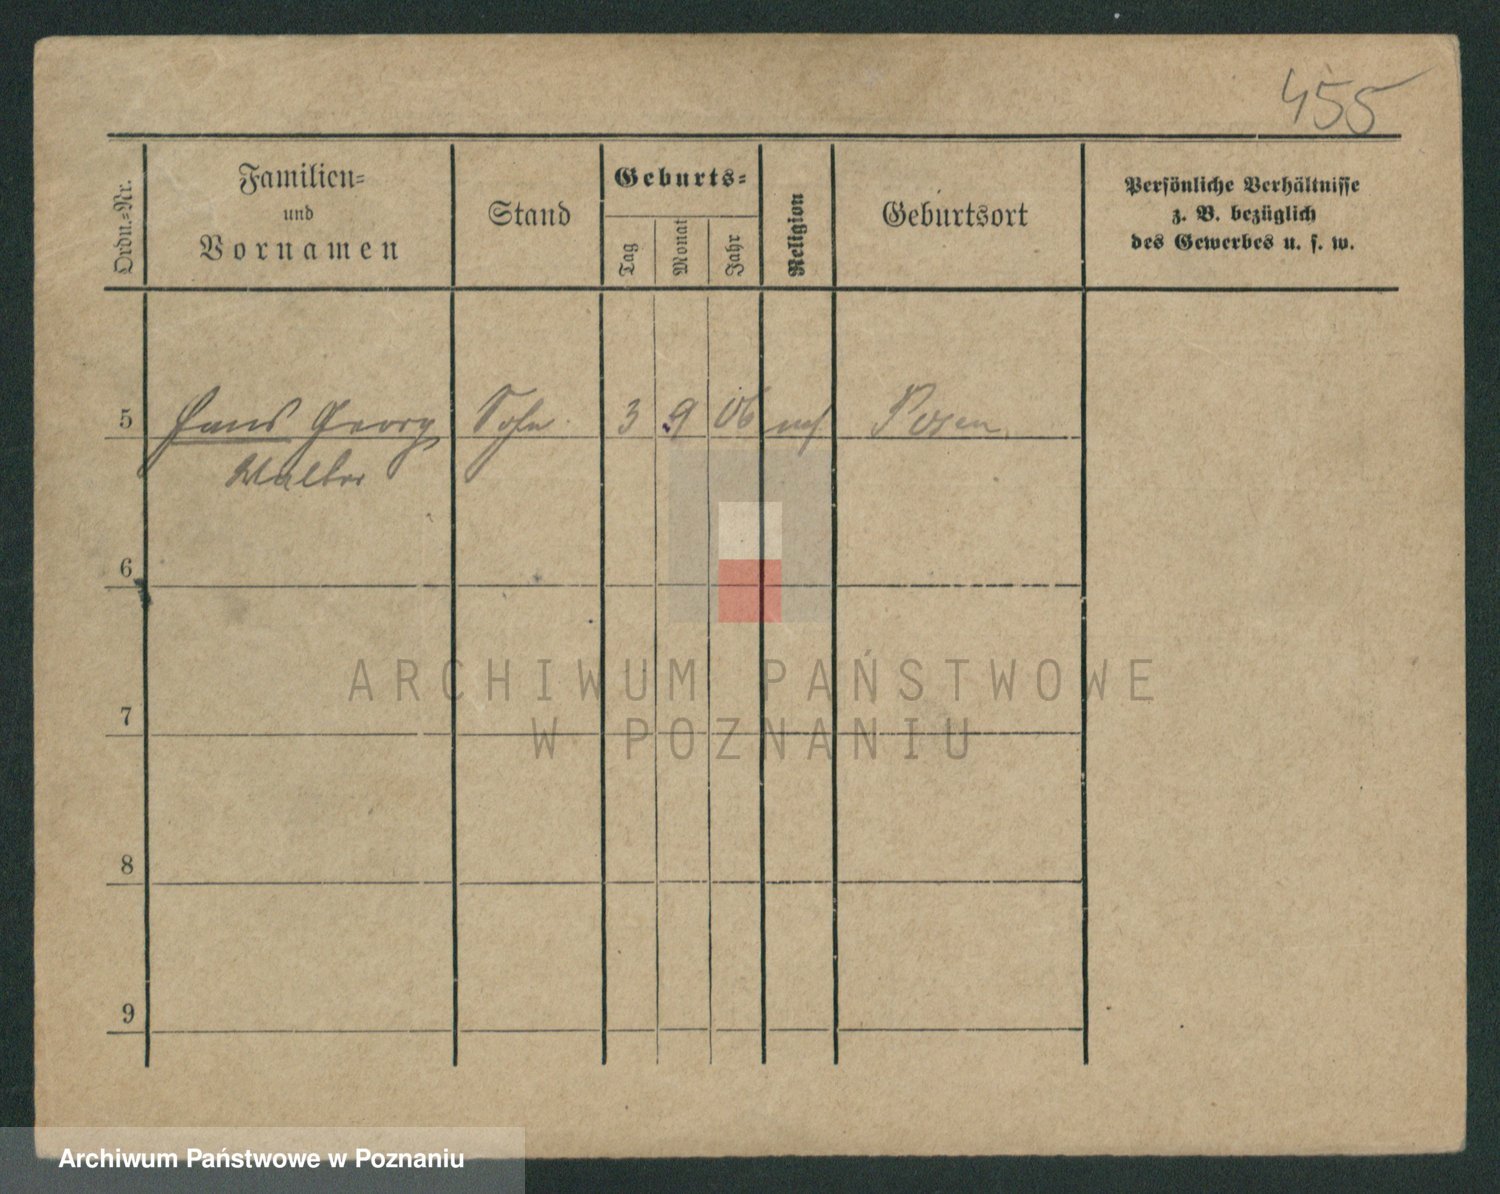 455
Ordn.-Nr.
Familien-
und
Vornamen
Stand
Geburts-
Tag
Monat
Jahr
Religion
Geburtsort
Persönliche Verhältnisse
z. B. bezüglich
des Gewerbes u. s. w.
5 Hans Georg Sohn 3 9 06 Posen
Walter
6
ARCHIWUM PAŃSTWOWE
7
W POZNANIU
8
9
Archiwum Państwowe w Poznaniu